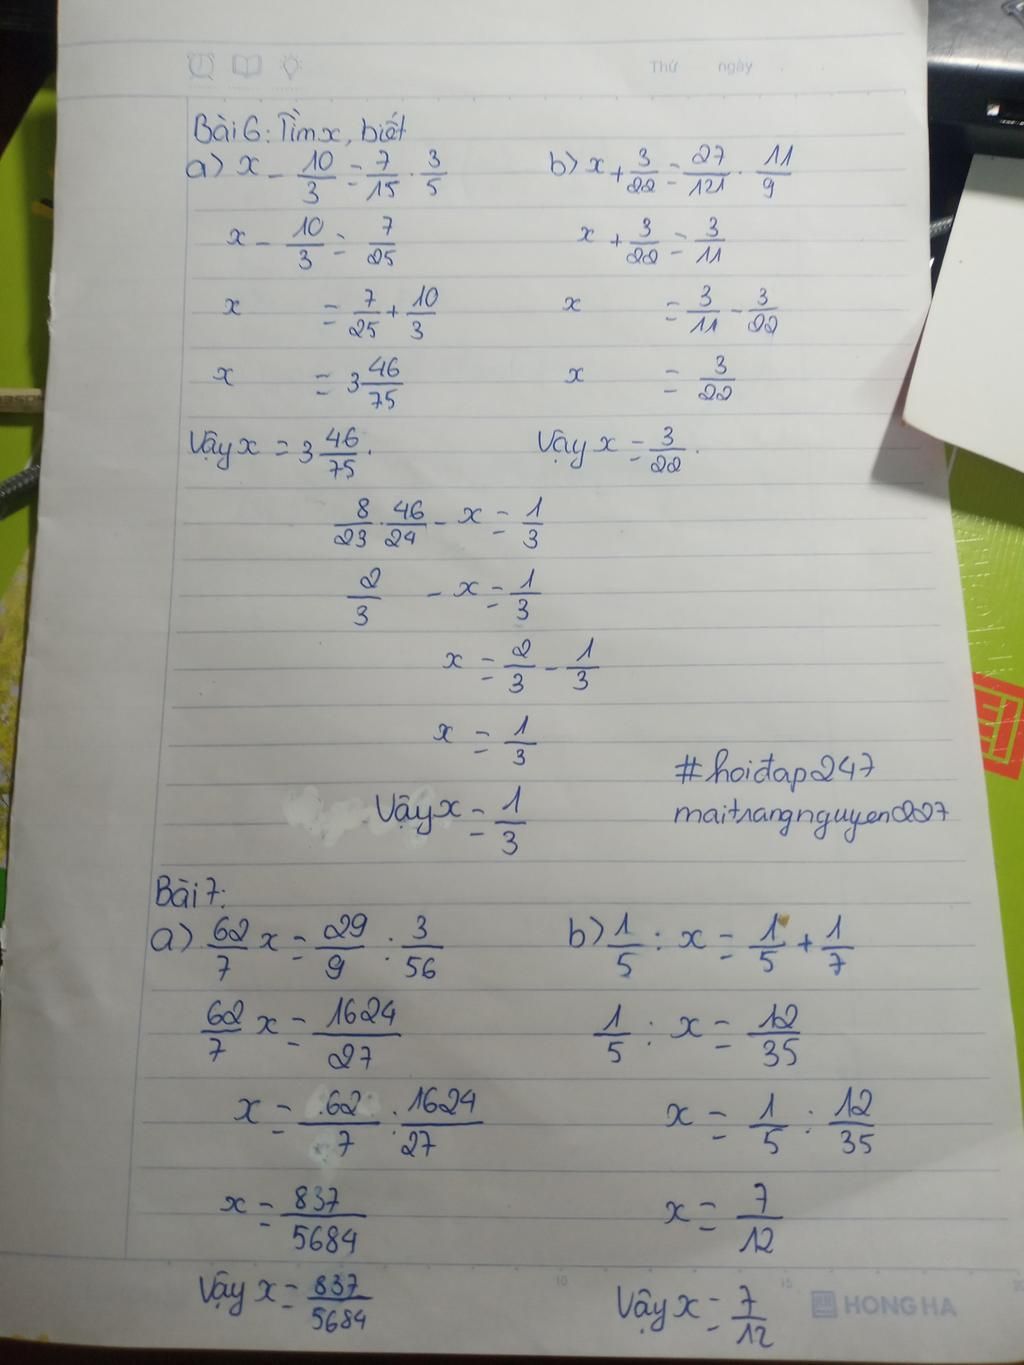 Thứ ngày
Bài 6: Tìm x, biết
a) x - 10/3 = 7/15 . 3/5
x - 10/3 = 7/25
x = 7/25 + 10/3
x = 3 46/75
Vậy x = 3 46/75.
b) x + 3/22 = 27/121 . 11/9
x + 3/22 = 3/11
x = 3/11 - 3/22
x = 3/22
Vậy x = 3/22.
8/23 . 46/24 - x = 1/3
2/3 - x = 1/3
x = 2/3 - 1/3
x = 1/3
Vậy x = 1/3
#hoiđap247
maitrangnguyen227
Bài 7:
a) 62/7 x = 29/9 : 3/56
62/7 x = 1624/27
x = 62/7 : 1624/27
x = 837/5684
Vậy x = 837/5684
b) 1/5 : x = 1/5 + 1/7
1/5 : x = 12/35
x = 1/5 : 12/35
x = 7/12
Vậy x = 7/12
10 15
HONG HA